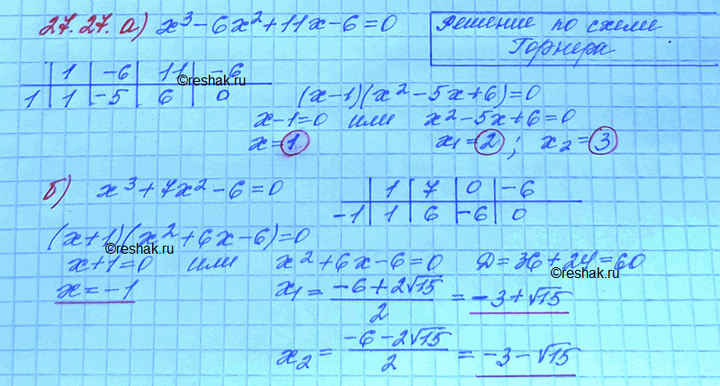 27.27. а) x³-6x²+11x-6=0
Решение по схеме
Горнера
1 | -6 | 11 | -6
1 | 1 | -5 | 6 | 0
©reshak.ru
(x-1)(x²-5x+6)=0
x-1=0 или x²-5x+6=0
x=1 x₁=2; x₂=3
б) x³+7x²-6=0
1 | 7 | 0 | -6
-1 | 1 | 6 | -6 | 0
(x+1)(x²+6x-6)=0
©reshak.ru
x+1=0 или x²+6x-6=0 Д=36+24=60
©reshak.ru
x=-1 x₁ = (-6+2√15)/2 = -3+√15
x₂ = (-6-2√15)/2 = -3-√15